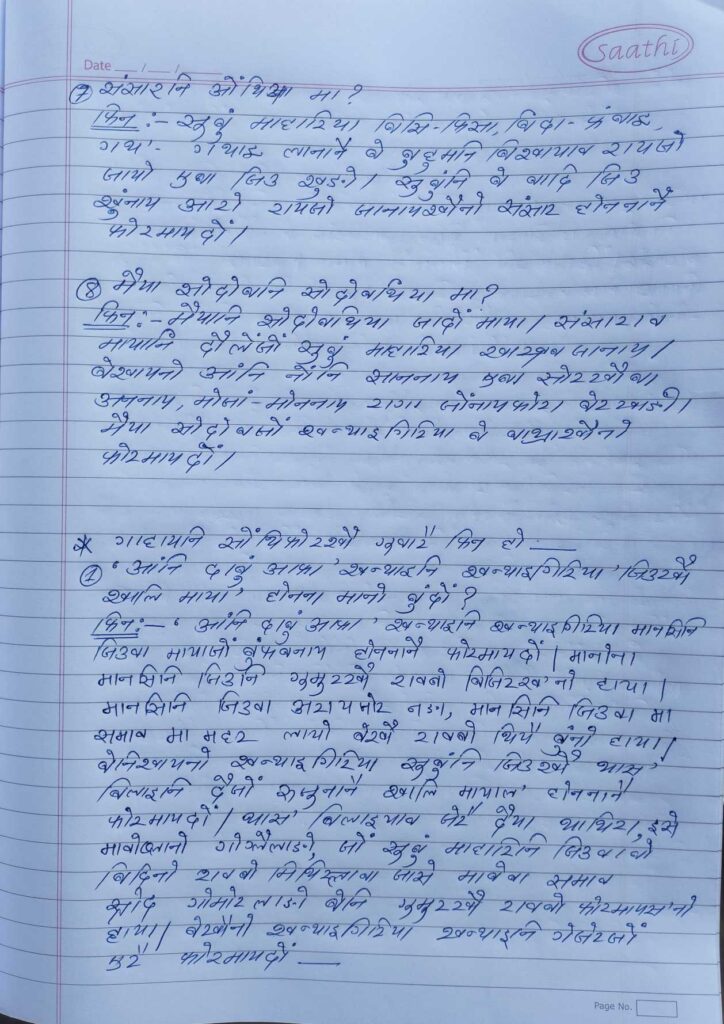 saathi
Date __/__/____
⑦ संसारनि ओंथिया मा?
फिन :- सुबुं माहारिया बिसि-फिसा, बिदा-फंबाइ,
गथ'-गथाइ लानानै बे बुहुमनि बिखायाव रायजो
जायो एबा जिउ खुङो। सुबुंनि बे बादि जिउ
खुंनाय आरो रायजो जानायखौनो संसार होननानै
फोरमायदों।
⑧ मैया सोदोबनि सोदोबथिया मा?
फिन:- मैयानि सोदोबथिया जादों माया। संसाराव
मायानि दैलेंजों सुबुं माहारिया खाख्रब जानाय।
बेखायनो आंनि नोंनि साननाय एबा सोरखौबा
अननाय, मोजां-मोननाय रागा जोंनायफोरा बेरखाङो।
मैया सोदोबजों खन्थाइगिरिया बे बाथ्राखौनो
फोरमायदों।
* गाहायनि सोंथिफोरखौ गुवारै फिन हो —
① 'आंनि दाबुं आफा' खन्थाइनि खन्थाइगिरिया 'जिउखौ
खालि माया' होनना मानो बुंदों?
फिन:- 'आंनि दाबुं आफा' खन्थाइनि खन्थाइगिरिया मानसिनि
जिउवा मायाजों बुंफबनाय होननानै फोरमायदों। मानोना
मानसिनि जिउनि गुमुरखौ रावबो बिजिरख'नो हाया।
मानसिनि जिउवा अरायथोर नङा, मानसिनि जिउवा मा
समाव मा महर लायो बेखौ रावबो थियै बुंनो हाया।
बेनिखायनो खन्थाइगिरिया सुबुंनि जिउखौ थास'
बिलाइनि दैजों रुजुनानै खालि मायाल' होननानै
फोरमायदों। थास' बिलाइयाव जेरै दैया थाथिरा, इसे
मावोब्लानो गोग्लैलाङो, जों सुबुं माहारिनि जिउवाबो
बिदिनो रावबो मिथिस्लावा जासे माबेबा समाव
स्रोद गोमोरलाङो बेनि गुमुरखौ रावबो फोरमायस'नो
हाया। बेखौनो खन्थाइगिरिया खन्थाइनि गेजेरजों
एरै फोरमायदों —
Page No.